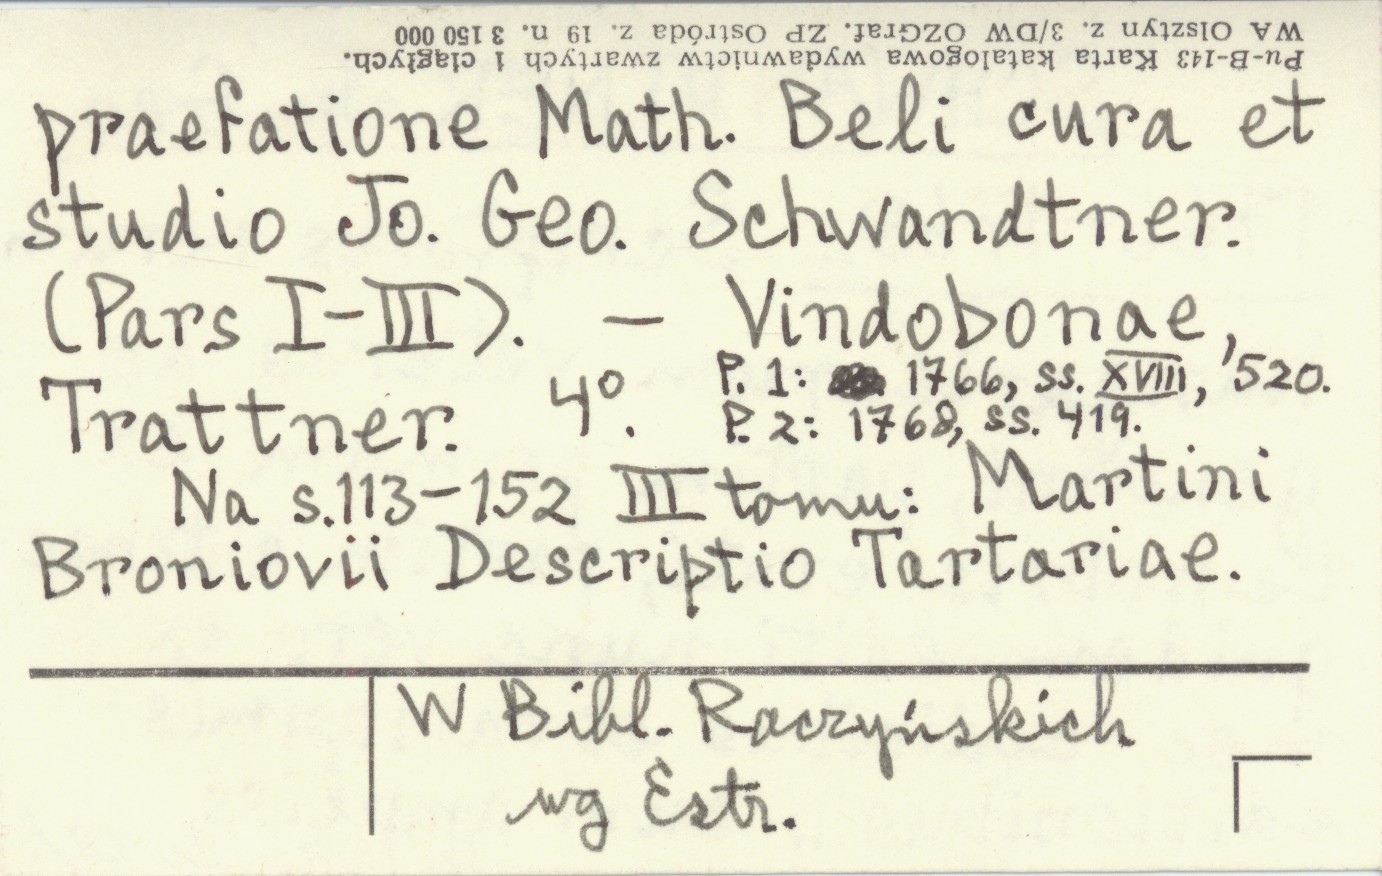 Pu-B-143 Karta katalogowa wydawnictw zwartych i ciągłych.
WA Olsztyn z. 3/DW OZGraf. ZP Ostróda z. 19 n. 3 150 000
praefatione Math. Beli cura et
studio Jo. Geo. Schwandtner.
(Pars I-III). — Vindobonae,
Trattner. 4°.
P. 1: 1766, ss. XVIII, 520.
P. 2: 1768, ss. 419.
Na s.113-152 III tomu: Martini
Broniovii Descriptio Tartariae.
W Bibl. Raczyńskich
wg Estr.